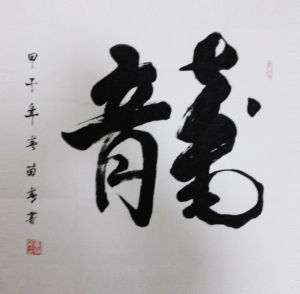 龍
甲午年春苗書